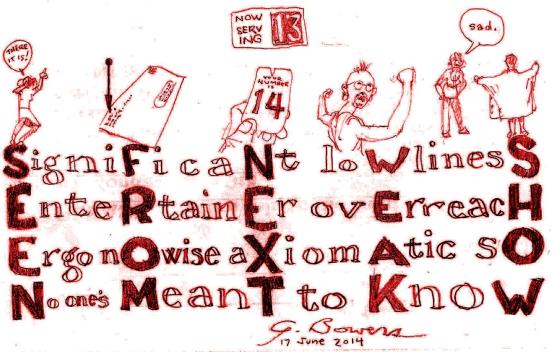 NOW
SERV
ING
13
THERE
IT IS!
sad.
YOUR
NUMBER
IS
14
SigniFicaNt loWlinesS
EnteRtainEr ovErreacH
Ergo nOwise aXiomAtic sO
No one's MeanT to KnoW
G. Bowers
17 June 2014